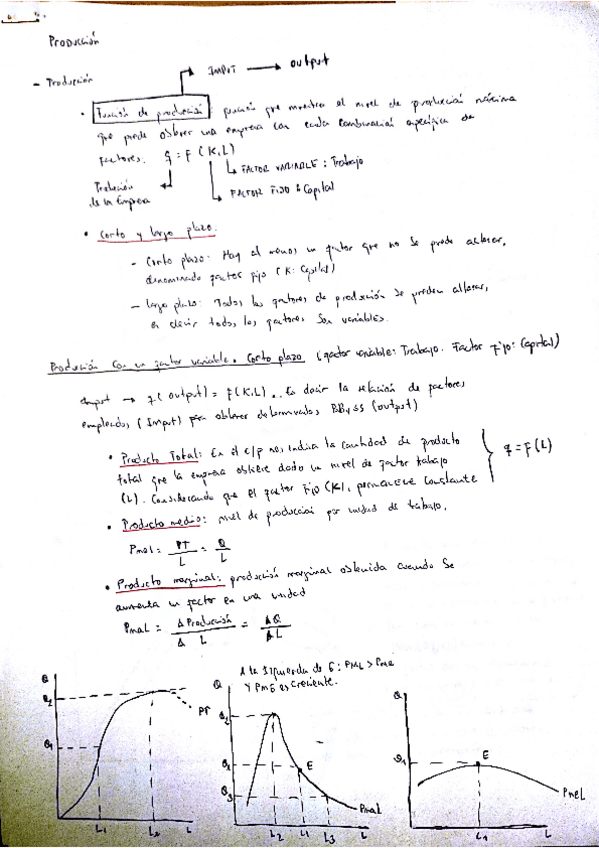 Producción
- Producción
INPUT → output
• Función de producción: función que muestra el nivel de producción máxima
que puede obtener una empresa con cada combinación específica de
factores. q = F (K,L)
FACTOR VARIABLE: Trabajo
FACTOR FIJO: Capital
Producción
de la Empresa
• Corto y largo plazo.
- Corto plazo: Hay al menos un factor que no se puede alterar,
denominado factor fijo (K: Capital)
- largo plazo: Todos los factores de producción se pueden alterar,
es decir todos los factores son variables.
Producción con un factor variable. Corto plazo (factor variable: Trabajo. Factor fijo: Capital)
Input → q (output) = F(K,L). Es decir la relación de factores
empleados (Input) para obtener determinados BB y SS (output)
• Producto Total: En el c/p nos indica la cantidad de producto
total que la empresa obtiene dado un nivel de factor trabajo
(L). Considerando que el factor Fijo (K), permanece constante
q = F(L)
• Producto medio: nivel de producción por unidad de trabajo.
PmeL = PT / L = Q / L
• Producto marginal: producción marginal obtenida cuando se
aumenta un factor en una unidad
PmaL = Δ Producción / Δ L = ΔQ / ΔL
A la izquierda de E: PML > Pme
y PmE es creciente.
Q
Q2
Q1
PT
L1
L2
L
Q
Q2
E
Q3
PmaL
L2
L1
L3
L
Q
E
PmeL
L1
L